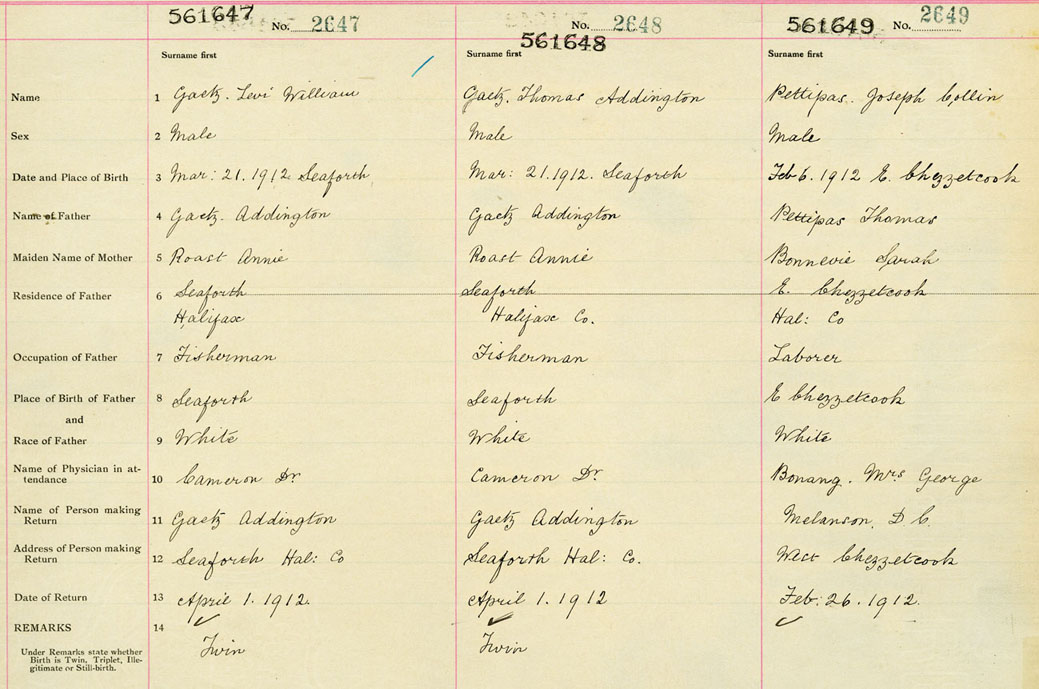 561647 No. 2647 No. 2648 561649 No. 2649
561648
Surname first Surname first Surname first
Name 1 Gaetz. Levi William Gaetz. Thomas Addington Pettipas. Joseph Collin
Sex 2 Male Male Male
Date and Place of Birth 3 Mar: 21. 1912 Seaforth Mar: 21. 1912. Seaforth Feb 6. 1912 E. Chezzetcook
Name of Father 4 Gaetz. Addington Gaetz Addington Pettipas Thomas
Maiden Name of Mother 5 Roast Annie Roast Annie Bonnevie Sarah
Residence of Father 6 Seaforth Seaforth E. Chezzetcook
Halifax Halifax Co. Hal: Co
Occupation of Father 7 Fisherman Fisherman Laborer
Place of Birth of Father 8 Seaforth Seaforth E Chezzetcook
and
Race of Father 9 White White White
Name of Physician in at-
tendance 10 Cameron Dr Cameron Dr. Bonang. Mrs George
Name of Person making
Return 11 Gaetz Addington Gaetz Addington Melanson, D C.
Address of Person making
Return 12 Seaforth Hal: Co Seaforth Hal: Co. West Chezzetcook
Date of Return 13 April 1. 1912. April 1. 1912 Feb. 26. 1912.
REMARKS 14
Twin Twin
Under Remarks state whether
Birth is Twin, Triplet, Ille-
gitimate or Still-birth.